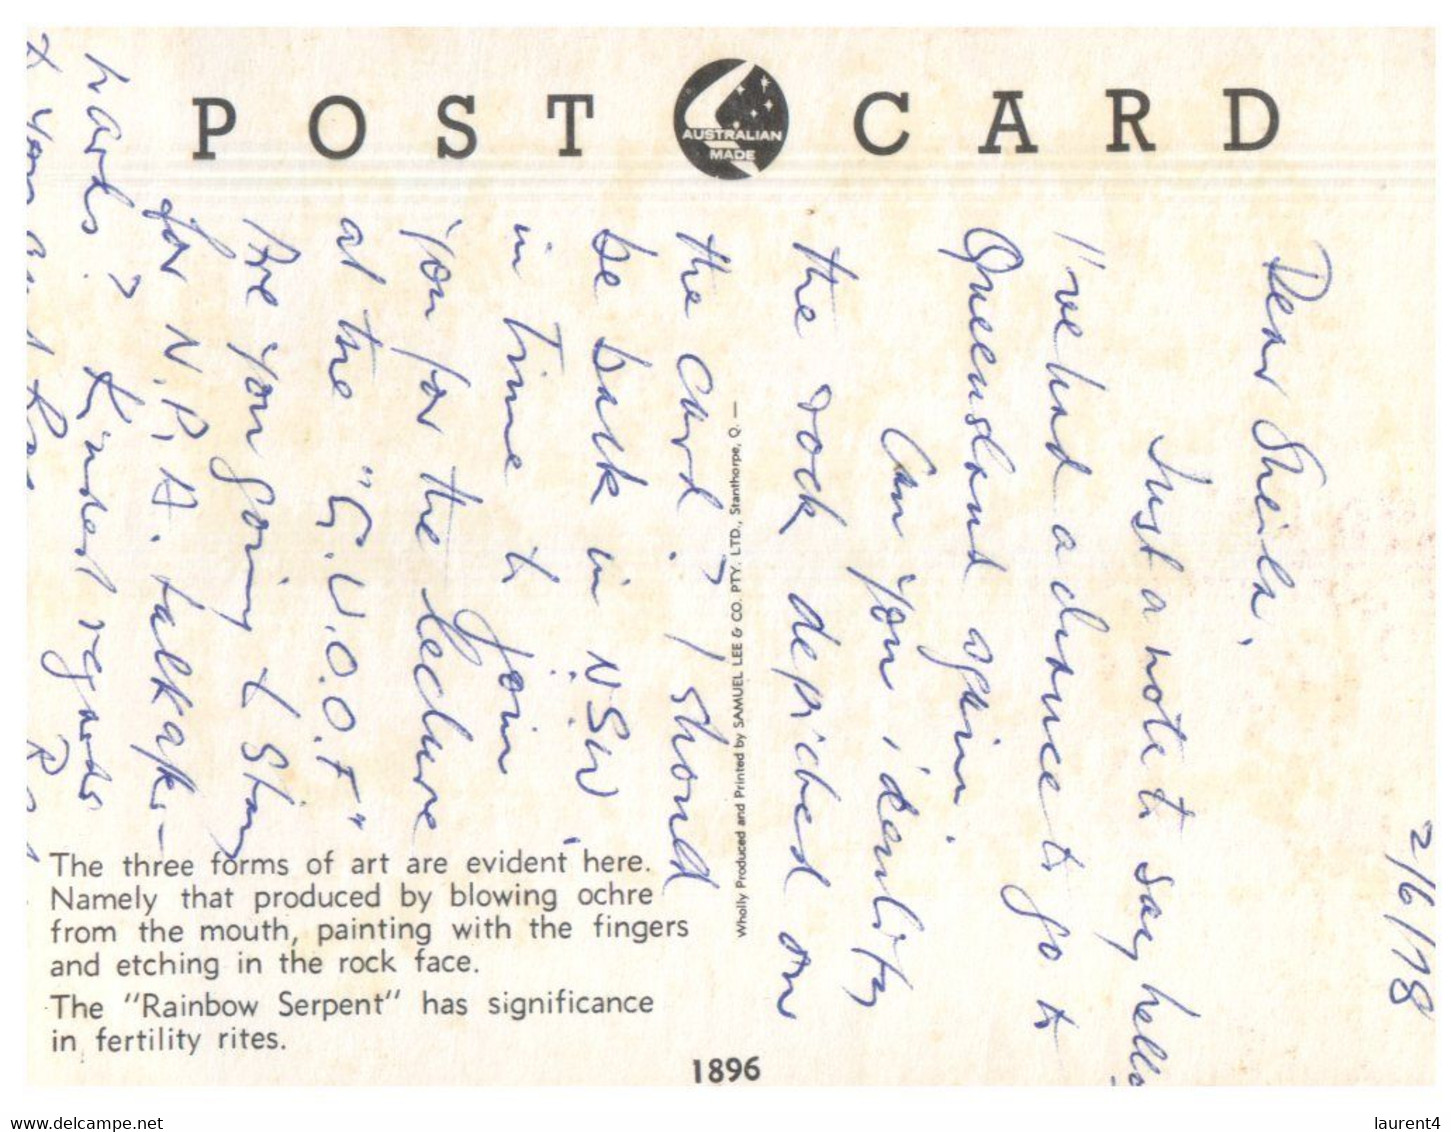 POST CARD
AUSTRALIAN
MADE
2/6/78
Dear Sheila,
Just a note to say hello
I've had a chance to go to
Queensland again.
Can you identity
the rock depicted on
the card? I should
be back in NSW
in time to join
you for the lecture
at the "G.U.O.O.F"
Are you going to stay
for N.P.A. talk after-
wards? Kindest regards
to you and Ros
The three forms of art are evident here.
Namely that produced by blowing ochre
from the mouth, painting with the fingers
and etching in the rock face.
The "Rainbow Serpent" has significance
in fertility rites.
Wholly Produced and Printed by SAMUEL LEE & CO. PTY. LTD., Stanthorpe, Q.—
1896
www.delcampe.net
laurent4